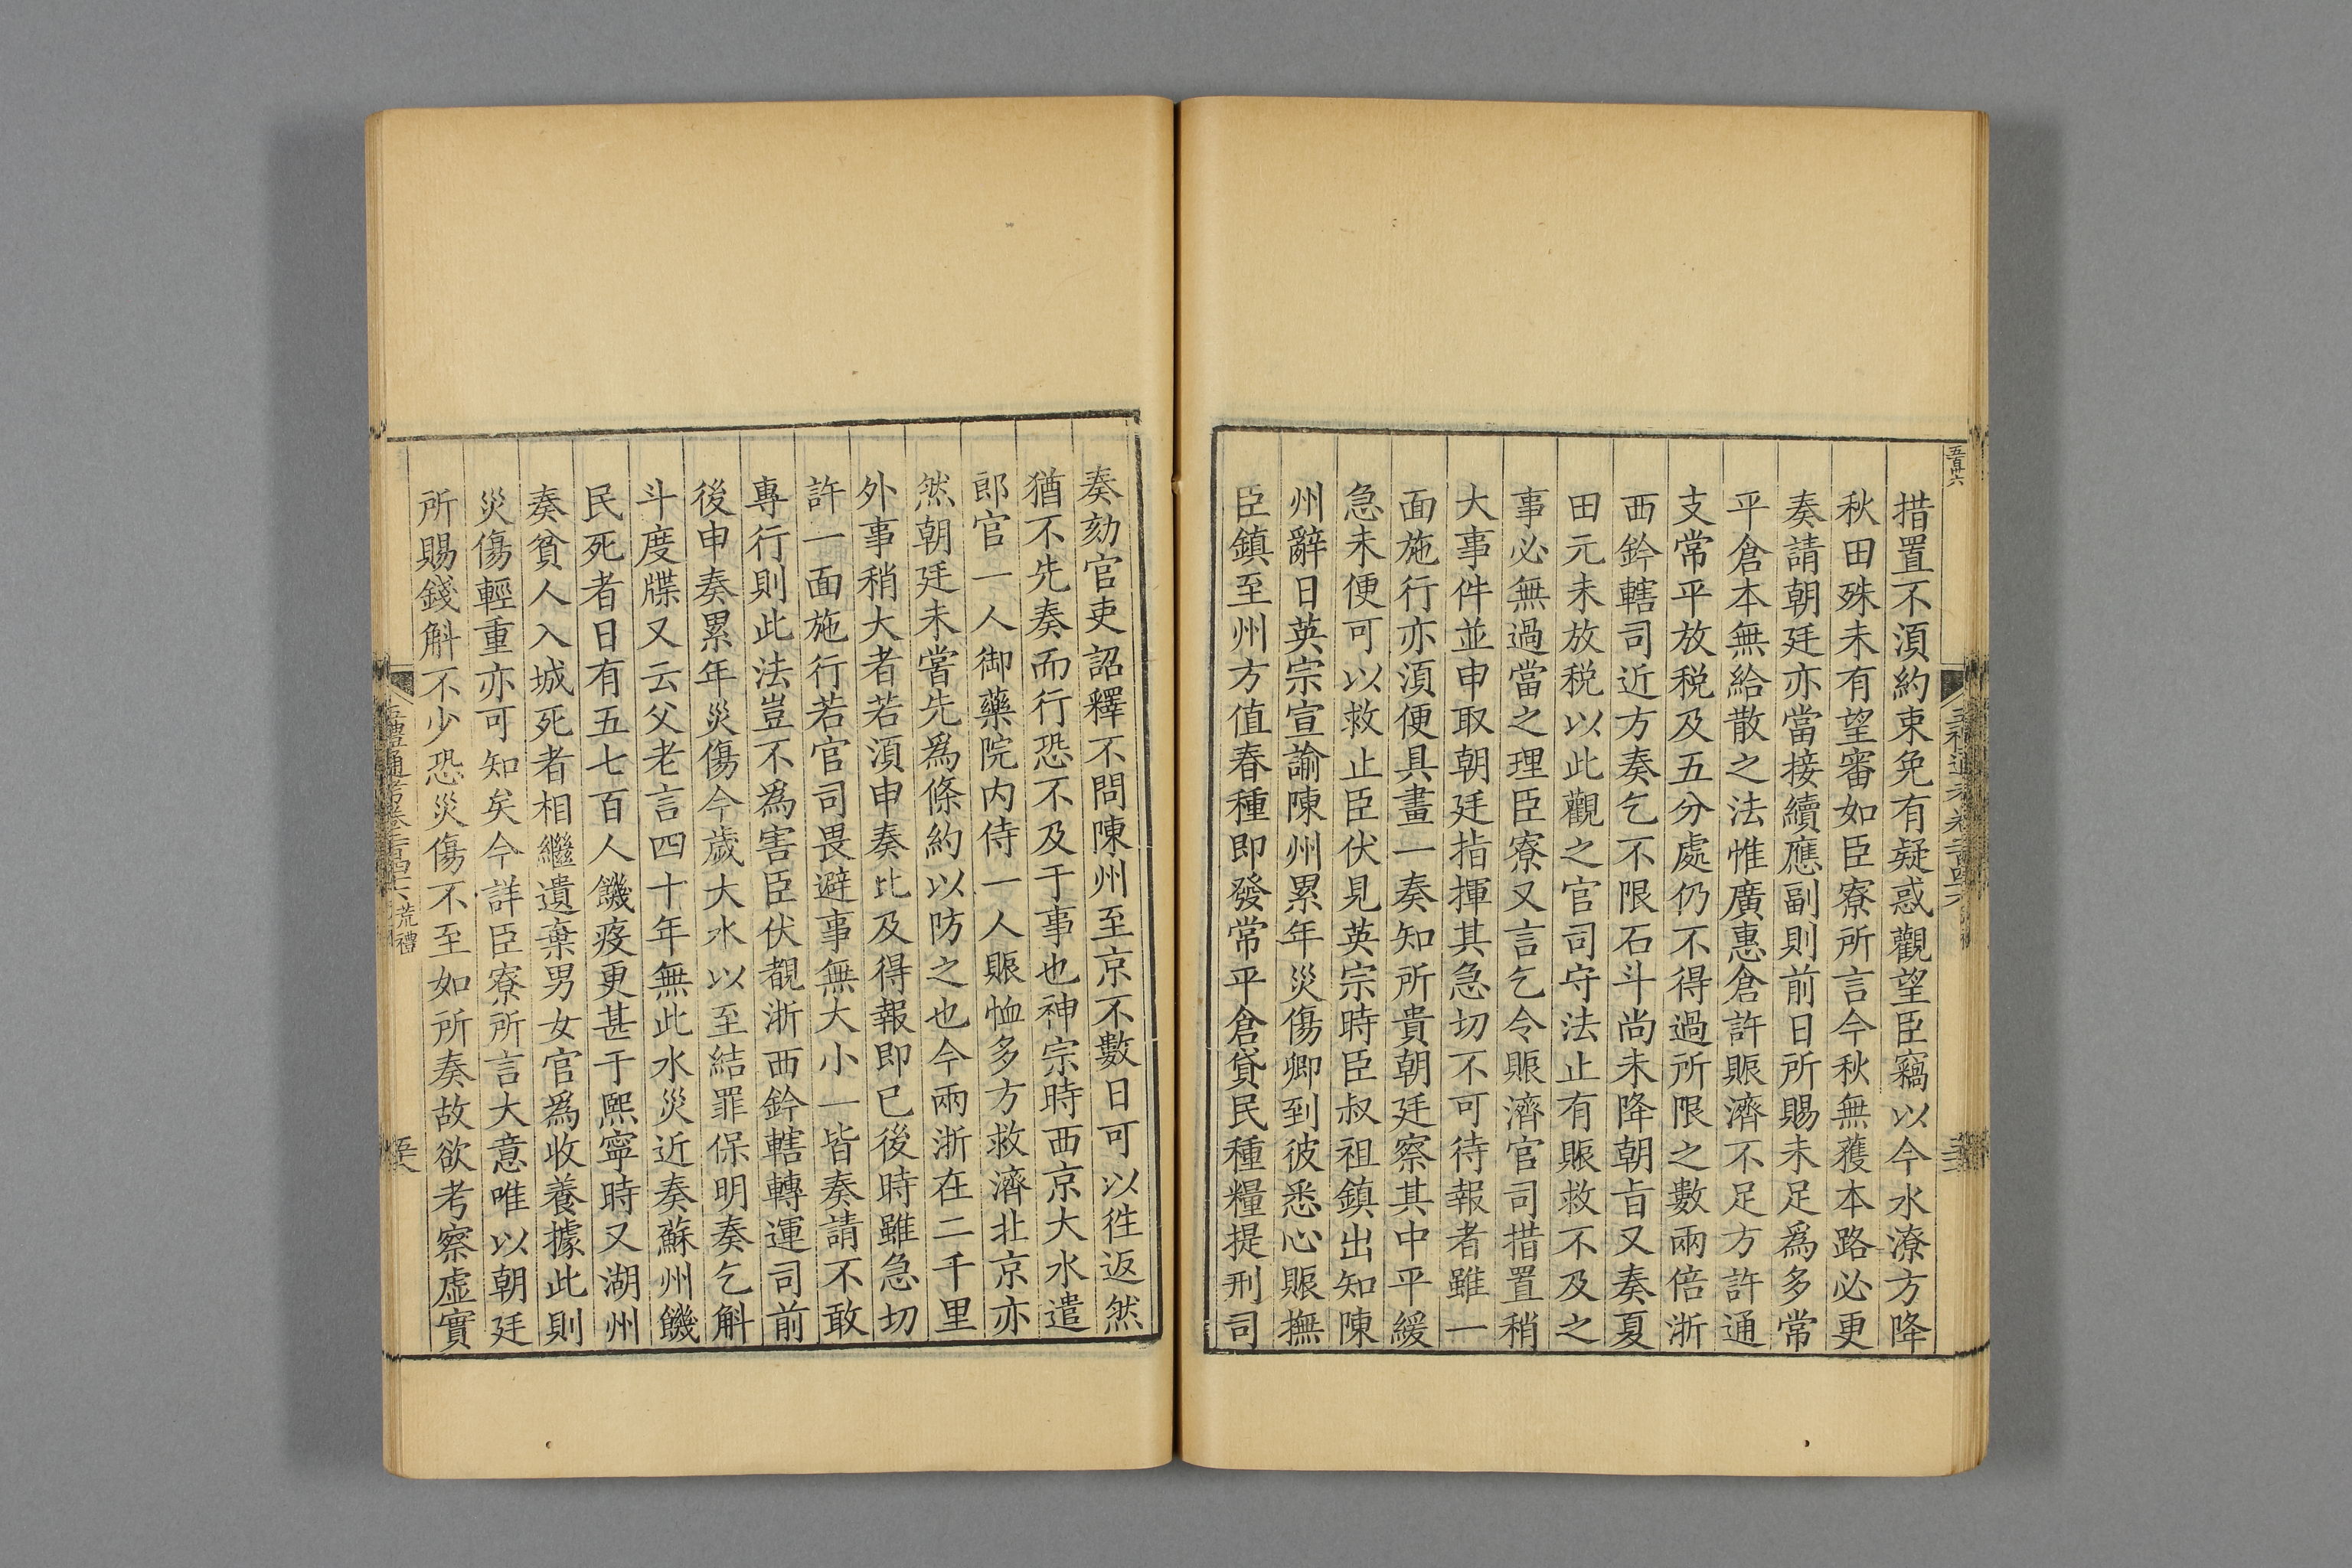 措置不須約束免有疑惑觀望臣竊以今水潦方降
秋田殊未有望審如臣寮所言今秋無蓷本路必更
奏請朝廷亦當接續應副則前日所賜未足爲多常
平倉本無給散之法惟廣惠倉許賑濟不足方許通
支常平放税及五分處仍不得過所限之數兩倍浙
西鈐轄司近方奏乞不限石斗尚未降朝旨又奏夏
田元未放税以此觀之官司守法止有賑救不及之
事必無過當之理臣寮又言乞令賑濟官司措置稍
大事件並申取朝廷指揮其急切不可待報者雖一
面施行亦須便具畫一奏知所貴朝廷察其中平緩
急未便可以救止臣伏見英宗時臣叔祖鎮出知陳
州辭日英宗宣諭陳州累年災傷卿到彼悉心賑撫
臣鎮至州方值春種即發常平倉貸民種糧提刑司
奏劾官吏詔釋不問陳州至京不數日可以徃返然
猶不先奏而行恐不及于事也神宗時西京大水遣
郎官一人御藥院内侍一人賑恤多方救濟北京亦
然朝廷未嘗先爲條約以防之也今兩浙在二千里
外事稍大者若須申奏比及得報即已後時雖急切
許一面施行若官司畏避事無大小一皆奏請不敢
專行則此法豈不爲害臣伏覩浙西鈐轄轉運司前
後申奏累年災傷今歲大水以至結罪保明奏乞斛
斗度牒又云父老言四十年無此水災近奏蘇州饑
民死者日有五七百人饑疫更甚于熙寧時又湖州
奏貧人入城死者相繼遺棄男女官爲收養據此則
災傷輕重亦可知矣今詳臣寮所言大意唯以朝廷
所賜錢斛不少恐災傷不至如所奏故欲考察虚實
五禮通考卷二百四十六 荒禮